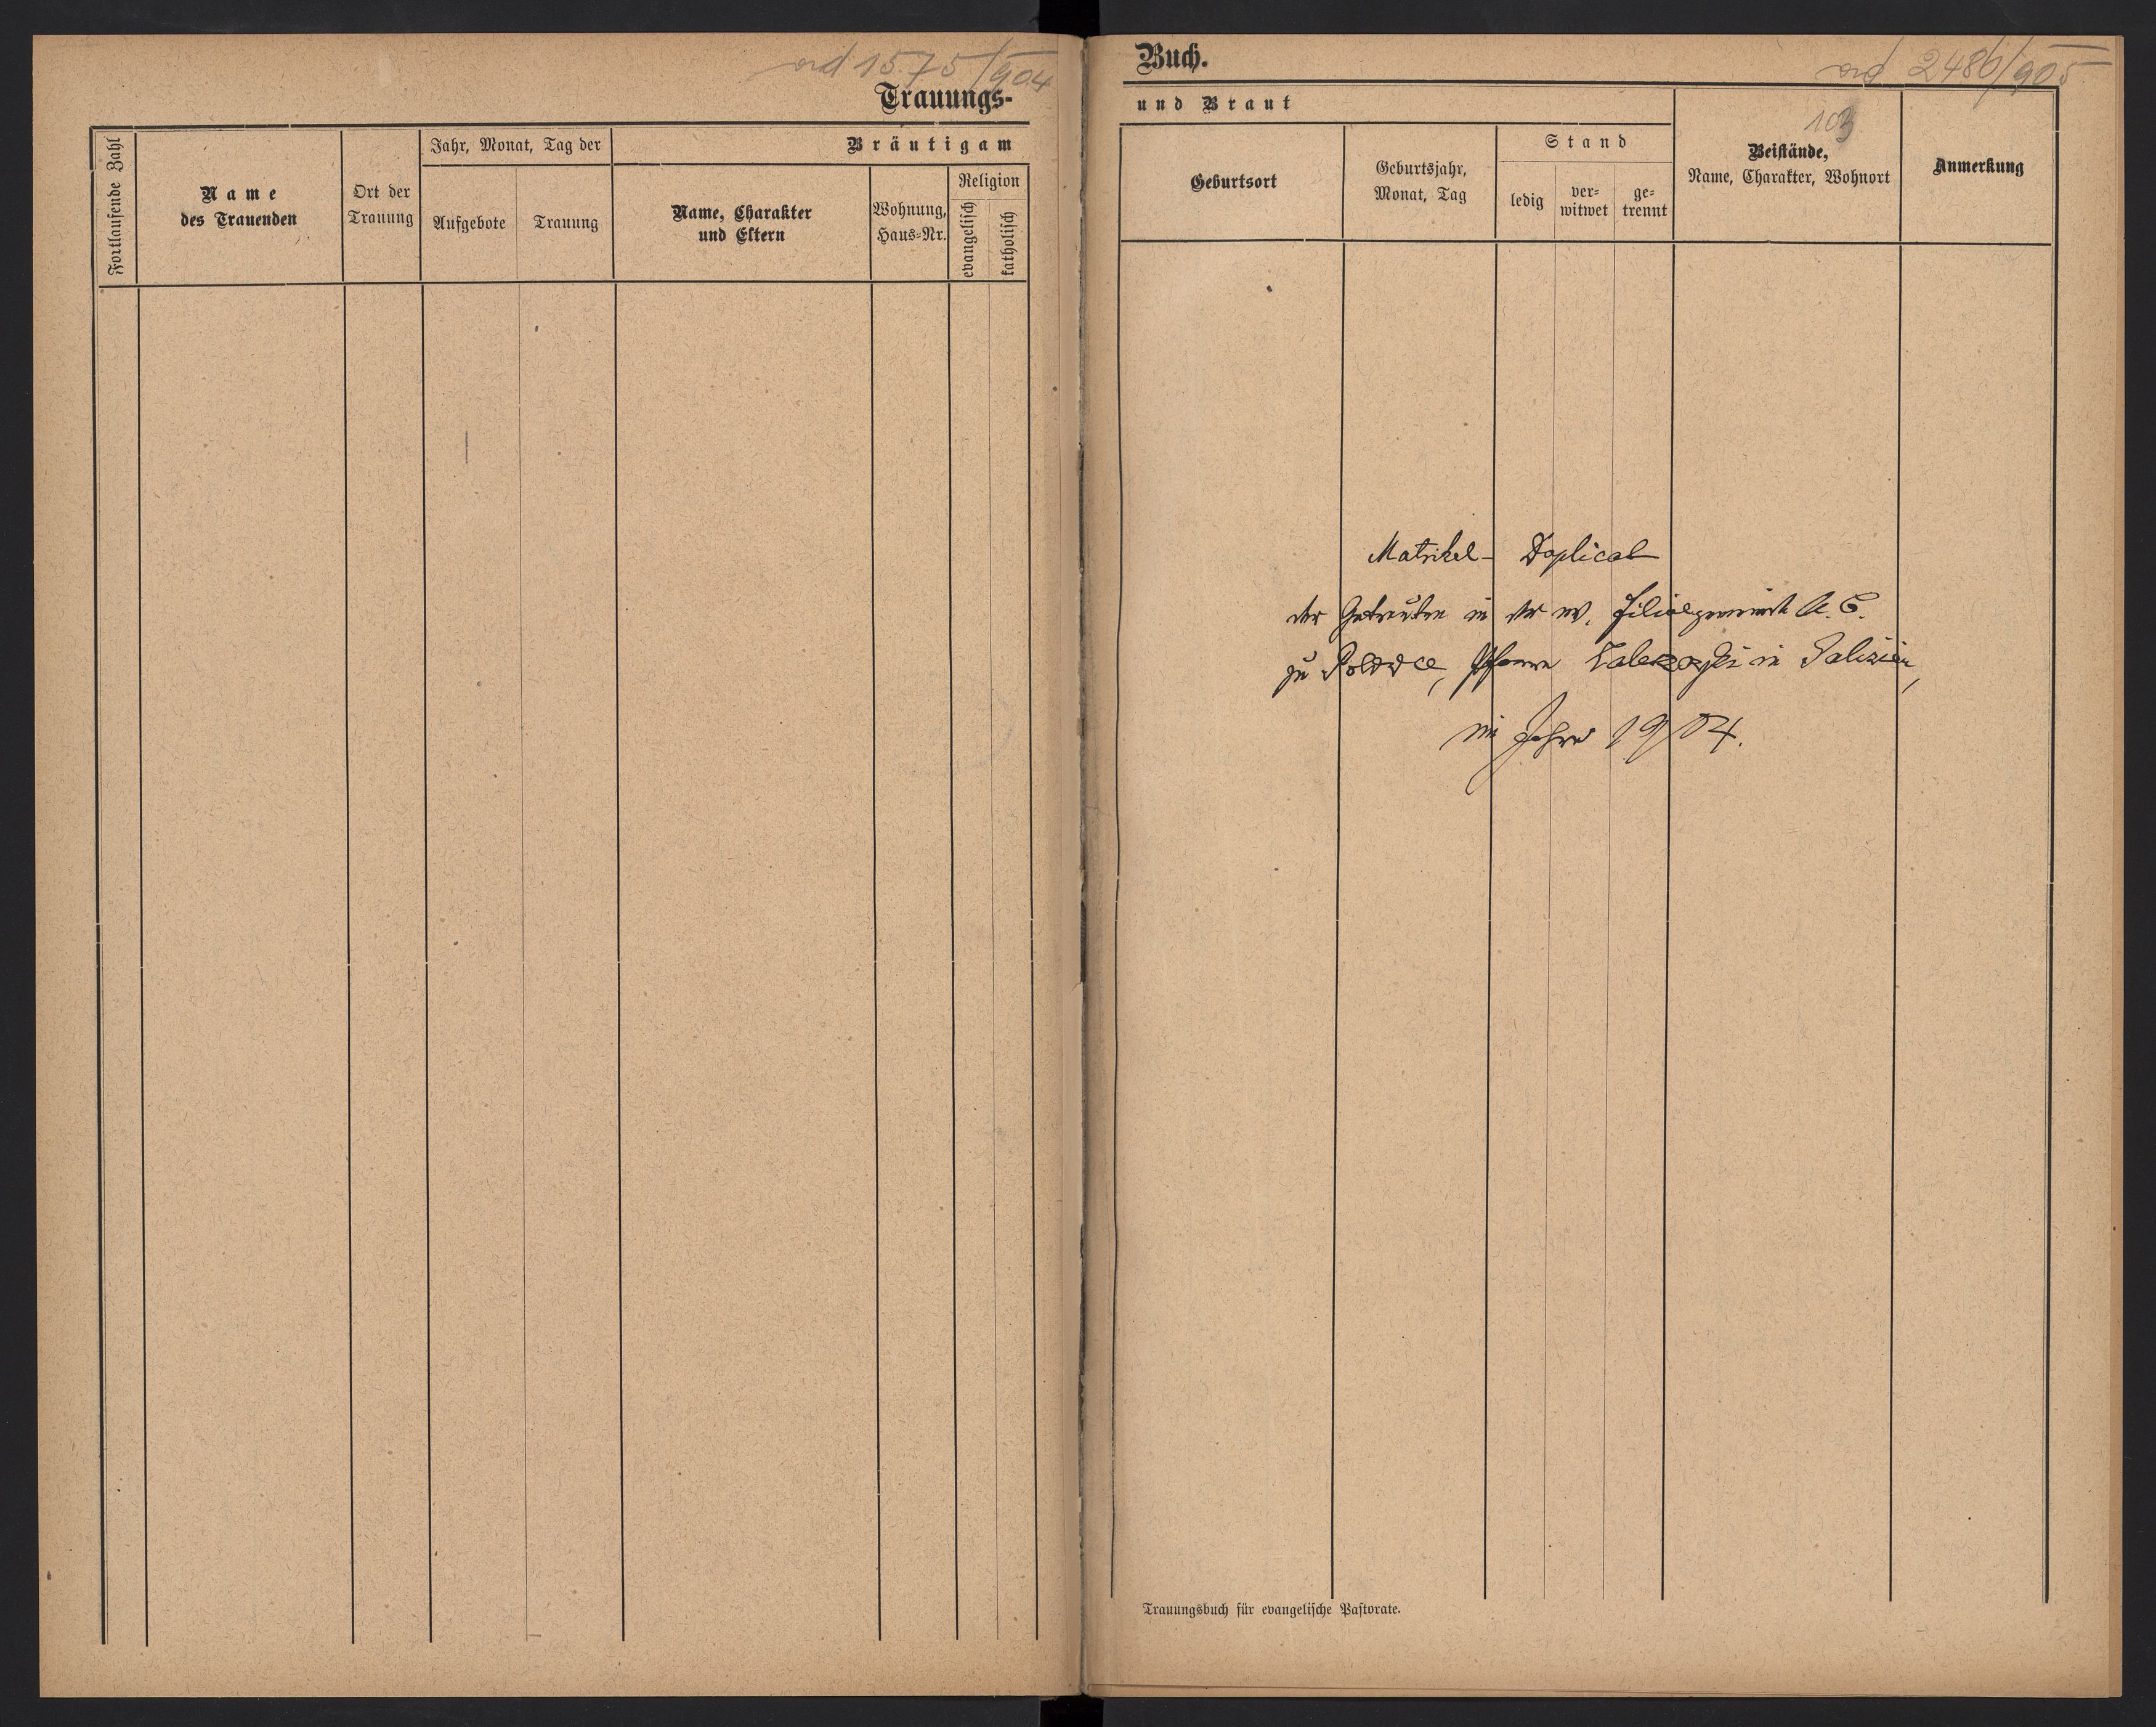 ad 1575/904
Trauungs-
Fortlaufende Zahl
Name
des Trauenden
Ort der
Trauung
Jahr, Monat, Tag der
Aufgebote
Trauung
Bräutigam
Name, Charakter
und Eltern
Wohnung,
Haus-Nr.
Religion
evangelisch
katholisch
Buch.
ad 2486/905
103
und Braut
Geburtsort
Geburtsjahr,
Monat, Tag
Stand
ledig
ver-
witwet
ge-
trennt
Beistände,
Name, Charakter, Wohnort
Anmerkung
Matrikel-Duplicat
der Getrauten in der ev. Filialgemeinde A. C.
zu Polowce, Pfarre Zaleszczyki in Galizien,
im Jahre 1904.
Trauungsbuch für evangelische Pastorate.